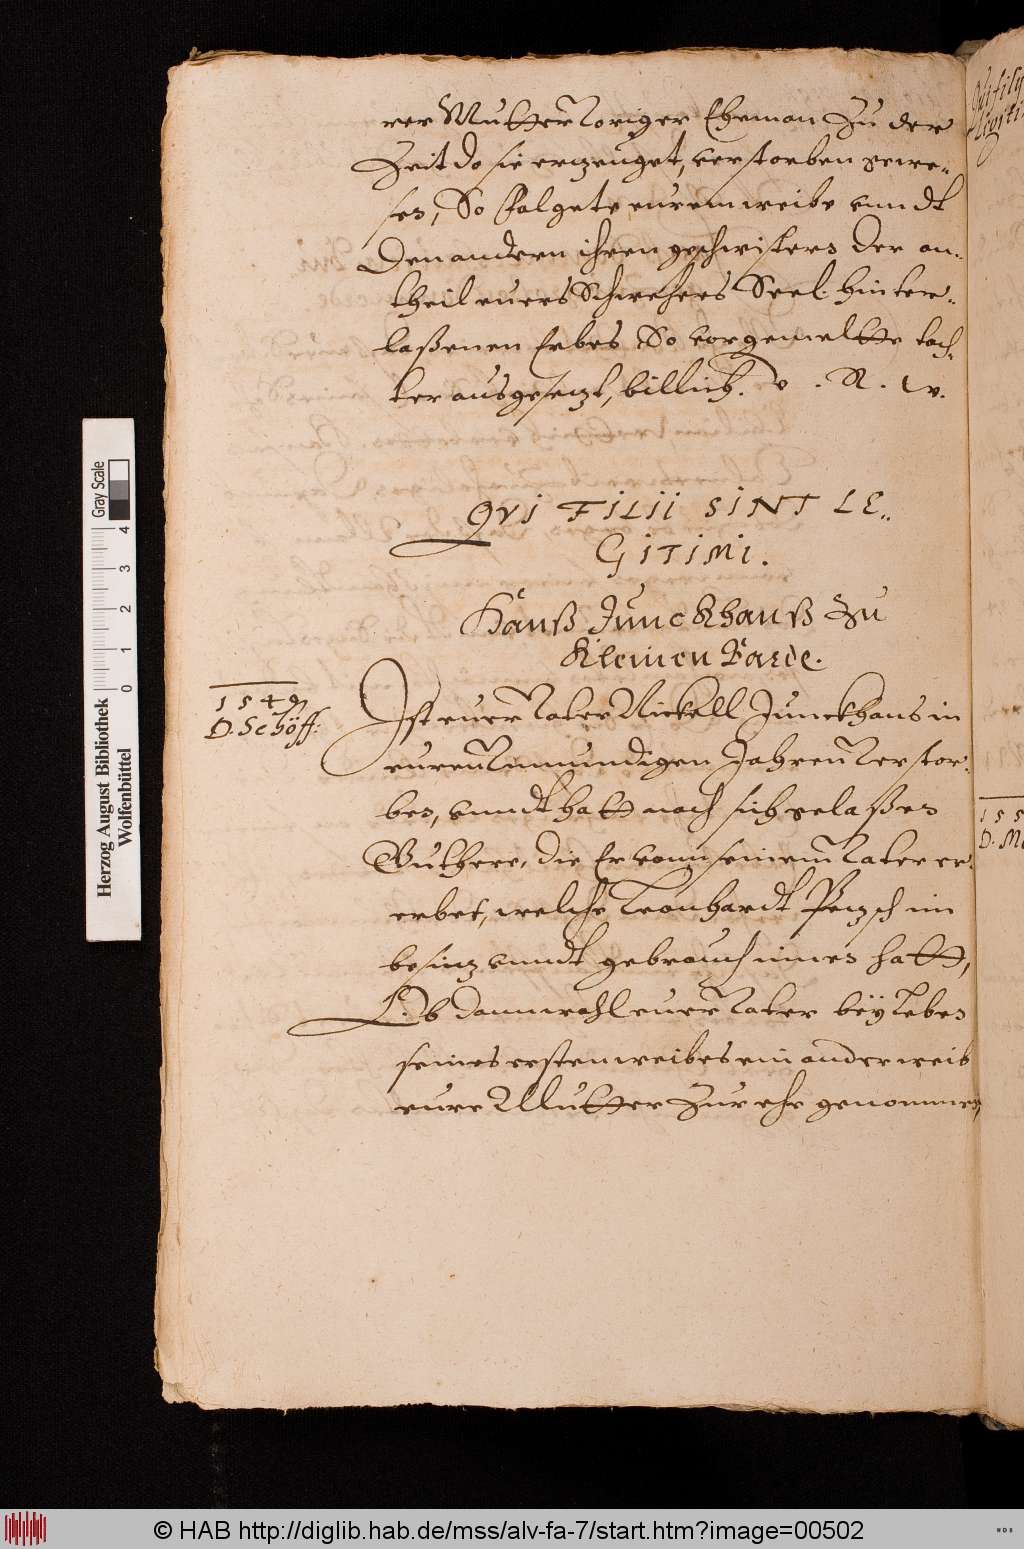 rer Mutter voriger Eheman Zu der
Zeit do sie erzeuget, verstorben gewe-
sen, So folgete eurem weibe vnndt
Den andern ihren geschwistern der an-
theil euers Schwehers Seel. hinter-
laßenen Erbes So vorgemeltte toch-
ter ausgesezt, billich. V. R. W.
QVI FILII SINT LE-
GITIMI.
Hanß Junckhanß Zu
Kleinen
1549
D. Schöff:
Ist euer Vater Nickell Junckhans in
euren Vnmundigen Jahren Verstor-
ben, vnndt hatt nach sich gelaßen
Guthere, die Er vonn seinem Vater er-
erbet, welche Leonhardt im
besiz vnndt gebrauch innen hatt,
Ob dannwohl euer Vater bey Leben
seines ersten weibes ein ander weib
eure Mutter Zur ehe genommen,
155
D. Ma
Herzog August Bibliothek
Wolfenbüttel
0 1 2 3 4
Gray Scale
© HAB http://diglib.hab.de/mss/alv-fa-7/start.htm?image=00502